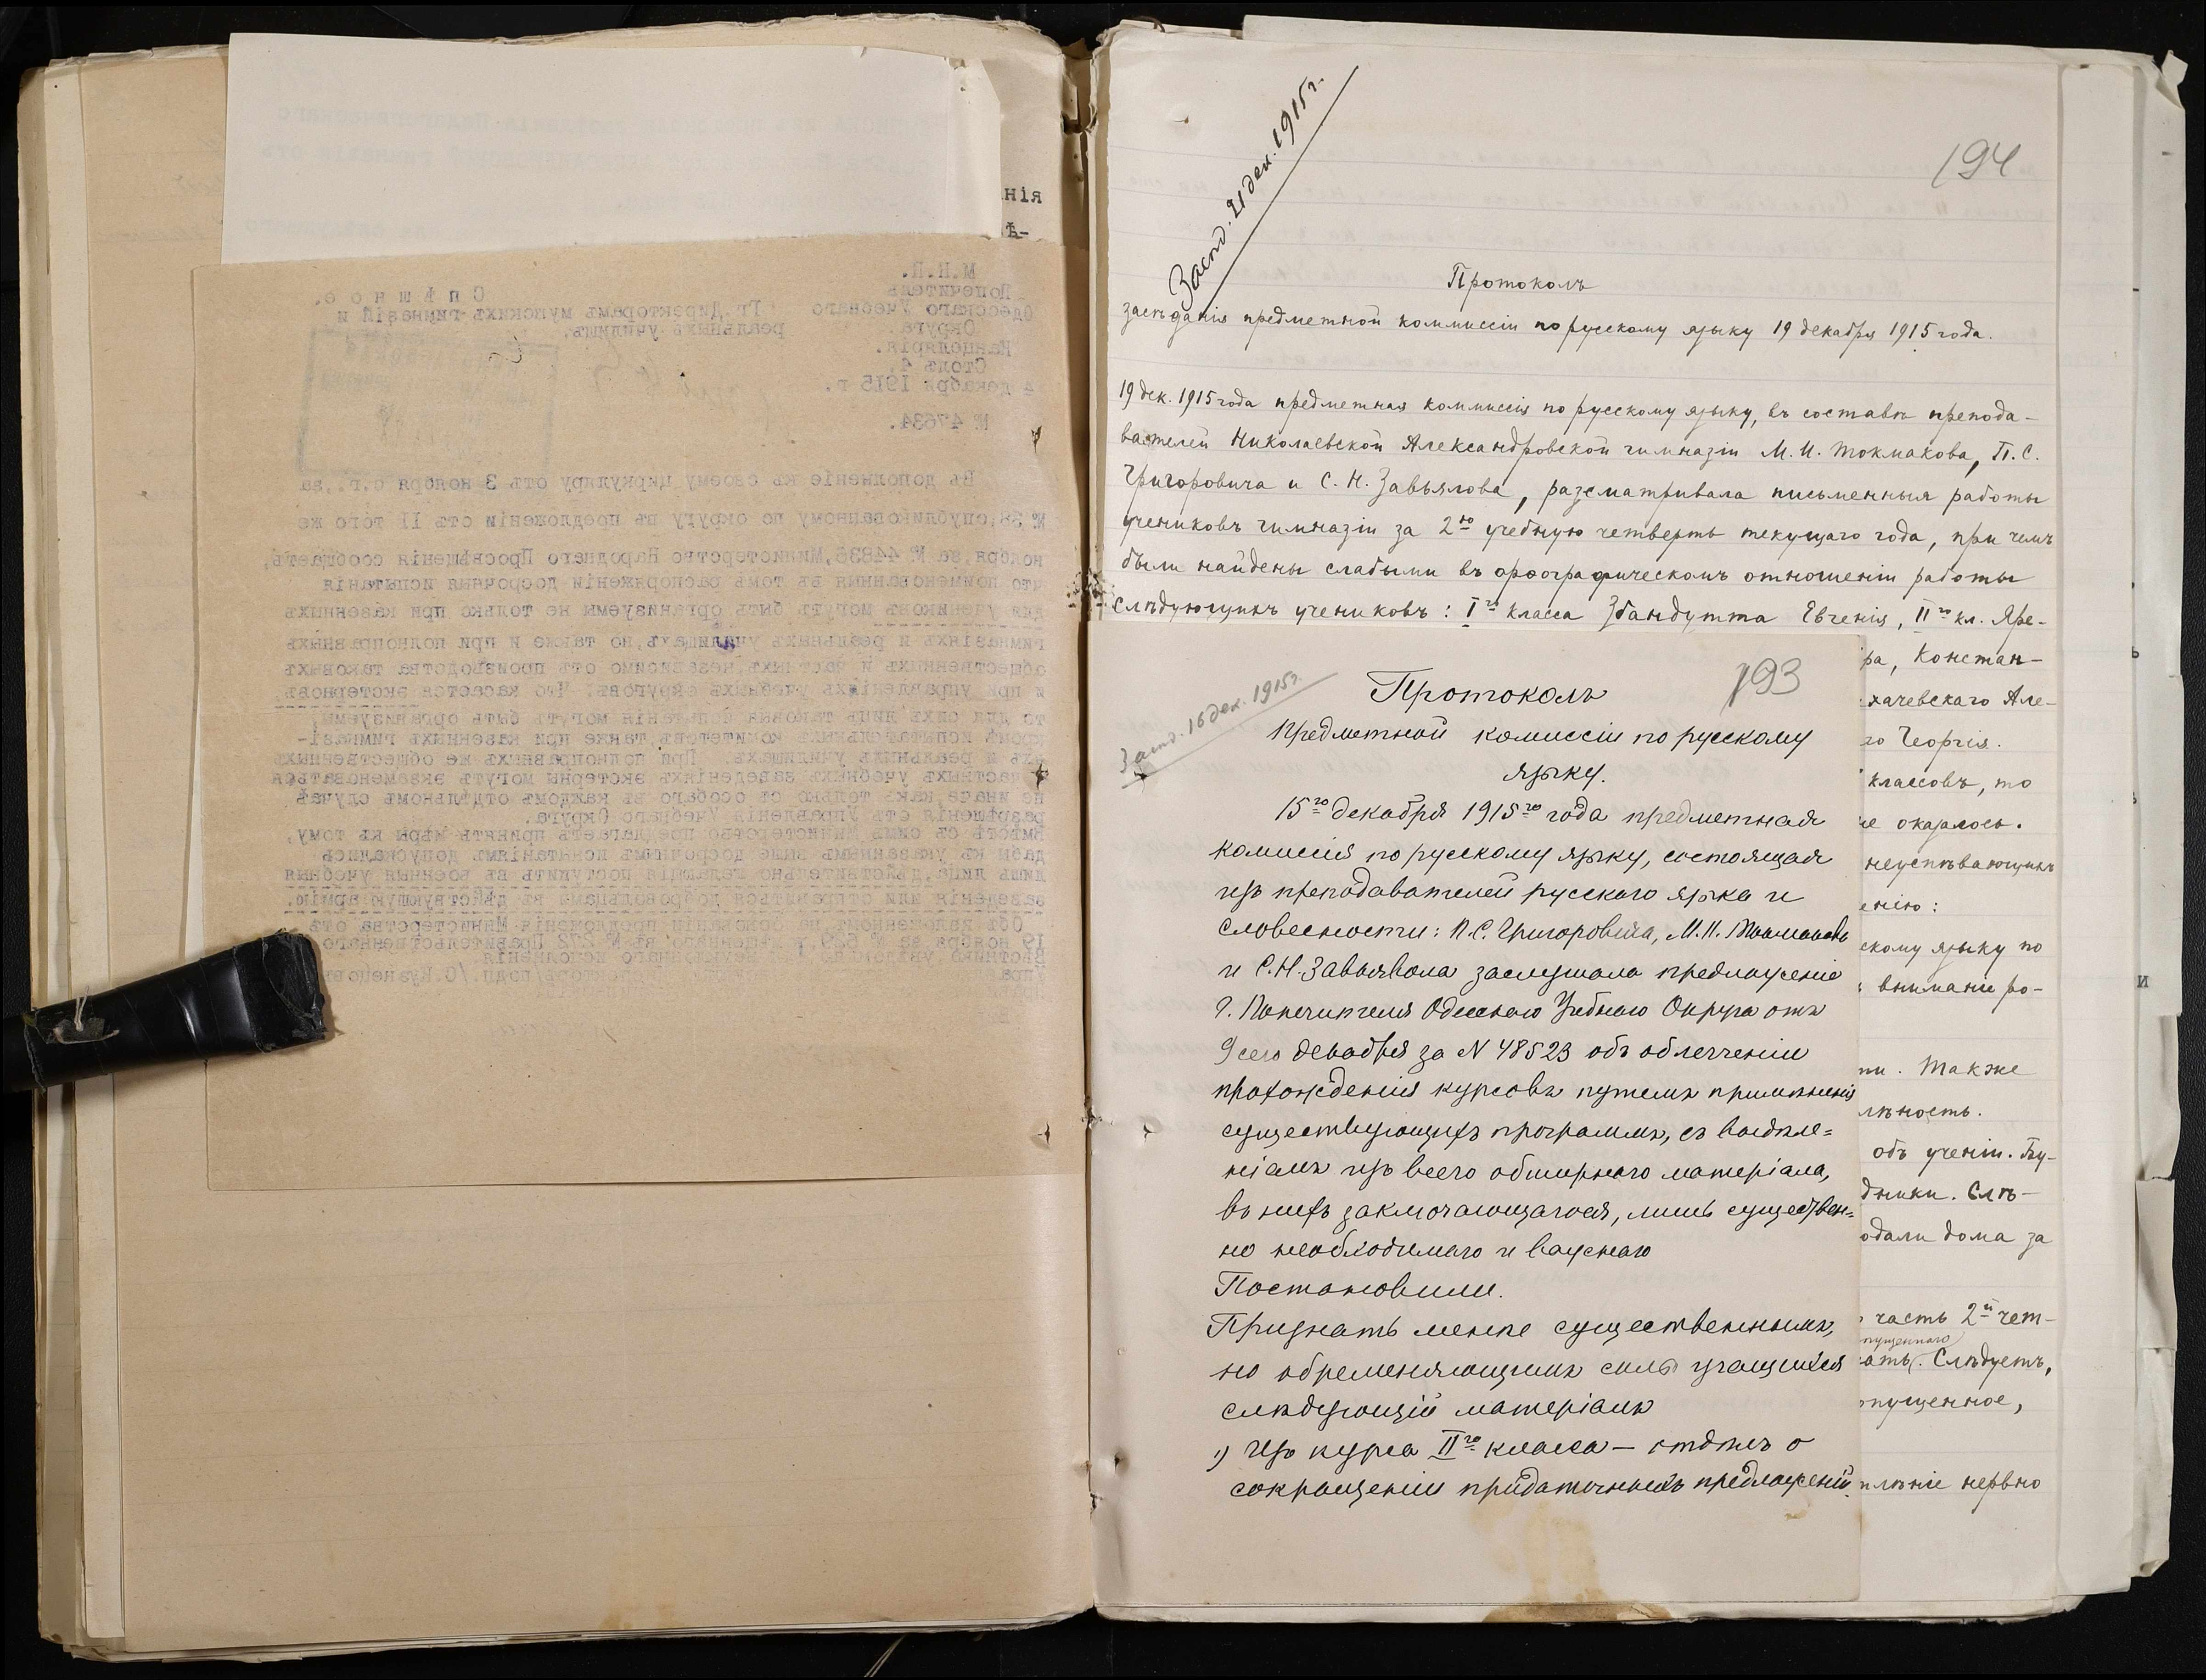 нія
ѣ-
М.Н.П.
Попечитель
Одесскаго Учебнаго
Округа.
Канцелярія.
Столъ 4.
4 декабря 1915 г.
№ 47634.
Спѣшное.
Гг. Директорамъ мужскихъ гимназій и
реальныхъ училищъ.
Въ дополненіе къ своему циркуляру отъ 3 ноября с.г., за
№ 58, опубликованному по округу въ предложеніи отъ 11 того же
ноября, за № 44836, Министерство Народнаго Просвѣщенія сообщаетъ,
что поименованныя въ томъ распоряженіи досрочныя испытанія
для учениковъ могутъ быть организуемы не только при казенныхъ
гимназіяхъ и реальныхъ училищахъ, но также и при полноправныхъ
общественныхъ и частныхъ, независимо отъ производства таковыхъ
и при управленіяхъ учебныхъ округовъ. Что касается экстерновъ,
то для сихъ лицъ таковыя испытанія могутъ быть организуемы,
кромѣ испытательныхъ комитетовъ, также при казенныхъ гимназі-
яхъ и реальныхъ училищахъ. При полноправныхъ же общественныхъ
частныхъ учебныхъ заведеніяхъ экстерны могутъ экзаменоваться
не иначе, какъ только съ особаго въ каждомъ отдѣльномъ случаѣ
разрѣшенія отъ Управленія Учебнаго Округа.
Вмѣстѣ съ симъ Министерство предлагаетъ принять мѣры къ тому,
дабы къ указаннымъ выше досрочнымъ испытаніямъ допускались
лишь лица, дѣйствительно желающія поступить въ военныя учебныя
заведенія или отправиться добровольцами въ дѣйствующую армію.
Объ изложенномъ, на основаніи предложенія Министерства отъ
19 ноября за № помѣщеннаго въ № 272 Правительственнаго
Вѣстника, исполненія
подп. /С.Кузнецовъ
Засѣд. 21 дек. 1915 г.
194
Протоколъ
засѣданія предметной коммиссіи по русскому языку 19 декабря 1915 года.
19 дек. 1915 года предметная коммиссія по русскому языку, въ составѣ препода-
вателей Николаевской Александровской гимназіи М. И. Токмакова, П. С.
Григоровича и С. Н. Завьялова, разсматривала письменныя работы
учениковъ гимназіи за 2ю учебную четверть текущаго года, при чемъ
были найдены слабыми въ орѳографическомъ отношеніи работы
слѣдующихъ учениковъ: Iго класса Збандутта Евгенія, IIго кл. Яре-
ра, Констан-
хачевскаго Але-
го Георгія.
классовъ, то
не оказалось.
неуспѣвающихъ
енію:
скому языку по
вниманіе ро-
ти. Также
льность.
объ ученіи. Бу-
дники. Слѣ-
одали дома за
часть 2й чет-
пущеннаго
ать. Слѣдуетъ,
опущенное,
нервно
193
Засѣд. 16 дек. 1915 г.
Протоколъ
предметной комиссіи по русскому
языку.
15го декабря 1915го года предметная
комиссія по русскому языку, состоящая
изъ преподавателей русскаго языка и
словесности: П. С. Григоровича, М. И. Токмакова
и С. Н. Завьялова заслушала предложеніе
Г. Попечителя Одесскаго Учебнаго Округа отъ
9 сего декабря за N 48523 объ облегченіи
прохожденія курсовъ путемъ примѣненія
существующихъ программъ, съ выдѣле=
ніемъ изъ всего обширнаго матеріала,
въ нихъ заключающагося, лишь существен=
но необходимаго и важнаго
Постановили.
Признать менѣе существеннымъ,
но обременяющимъ силы учащихся
слѣдующій матеріалъ
1) Изъ курса IIго класса — отдѣлъ о
сокращеніи придаточныхъ предложеній